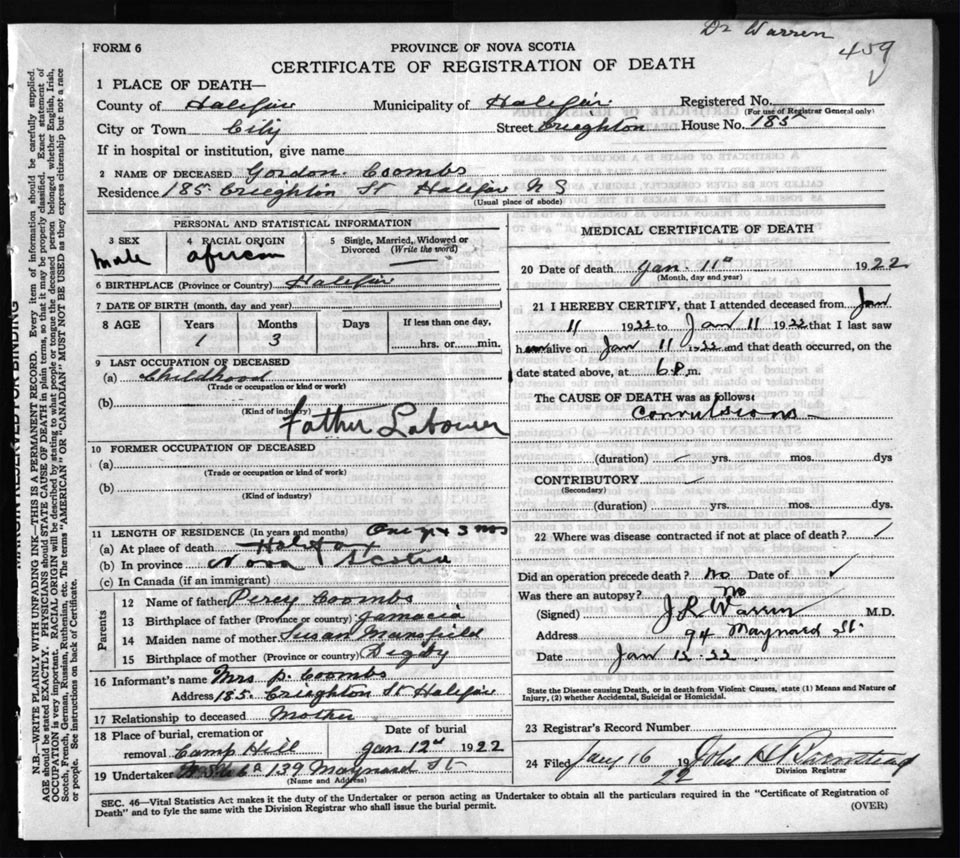 Dr Warren
459
FORM 6
PROVINCE OF NOVA SCOTIA
CERTIFICATE OF REGISTRATION OF DEATH
1 PLACE OF DEATH—
County of Halifax Municipality of Halifax Registered No.
(For use of Registrar General only)
City or Town City Street Creighton House No. 185
If in hospital or institution, give name
2 NAME OF DECEASED Gordon Coombs
Residence 185 Creighton St Halifax N S
(Usual place of abode)
PERSONAL AND STATISTICAL INFORMATION
3 SEX 4 RACIAL ORIGIN 5 Single, Married, Widowed or
Divorced (Write the word)
Male African —
6 BIRTHPLACE (Province or Country) Halifax
7 DATE OF BIRTH (month, day and year)
8 AGE Years Months Days If less than one day,
1 3 hrs. or min.
9 LAST OCCUPATION OF DECEASED
(a) Childhood
(Trade or occupation or kind or work)
(b)
(Kind of industry)
Father Labourer
10 FORMER OCCUPATION OF DECEASED
(a)
(Trade or occupation or kind of work)
(b)
(Kind of industry)
11 LENGTH OF RESIDENCE (In years and months) One yr & 3 mos
(a) At place of death Halifax
(b) In province Nova Scotia
(c) In Canada (if an immigrant)
Parents
12 Name of father Percy Coombs
13 Birthplace of father (Province or country) Jamacia
14 Maiden name of mother Susan Mansfield
15 Birthplace of mother (Province or country) Digby
16 Informant's name Mrs P. Coombs
Address 185 Creighton St Halifax
17 Relationship to deceased Mother
18 Place of burial, cremation or Date of burial
removal Camp Hill Jan 12th 1922
19 Undertaker 139 Maynard St
(Name and Address)
MEDICAL CERTIFICATE OF DEATH
20 Date of death Jan. 11th 1922
(Month, day and year)
21 I HEREBY CERTIFY, that I attended deceased from Jan
11 1922 to Jan 11 1922 that I last saw
h alive on Jan 11 1922 and that death occurred, on the
date stated above, at 6 P. m.
The CAUSE OF DEATH was as follows:
Convulsions
(duration) yrs. mos. dys
CONTRIBUTORY
(Secondary)
(duration) yrs. mos. dys.
22 Where was disease contracted if not at place of death?
Did an operation precede death? No Date of
Was there an autopsy? No
(Signed) J R Warren M.D.
Address 94 Maynard St.
Date Jan 12. 22
State the Disease causing Death, or in death from Violent Causes, state (1) Means and Nature of
Injury, (2) whether Accidental, Suicidal or Homicidal.
23 Registrar's Record Number
24 Filed Jany 16 1922
Division Registrar
SEC. 46—Vital Statistics Act makes it the duty of the Undertaker or person acting as Undertaker to obtain all the particulars required in the "Certificate of Registration of
Death" and to fyle the same with the Division Registrar who shall issue the burial permit. (OVER)
MARGIN RESERVED FOR BINDING
N.B.—WRITE PLAINLY WITH UNFADING INK—THIS IS A PERMANENT RECORD. Every item of information should be carefully supplied.
AGE should be stated EXACTLY. PHYSICIANS should state CAUSE OF DEATH in plain terms, so that it may be properly classified. Exact statement of
OCCUPATION is very important. RACIAL ORIGIN will be described by stating to what people or tongue the deceased person belonged whether English, Irish,
Scotch, French, German, Russian, Ruthenian, etc. The terms "AMERICAN" or "CANADIAN" MUST NOT BE USED as they express citizenship but not a race
or people. See instructions on back of Certificate.